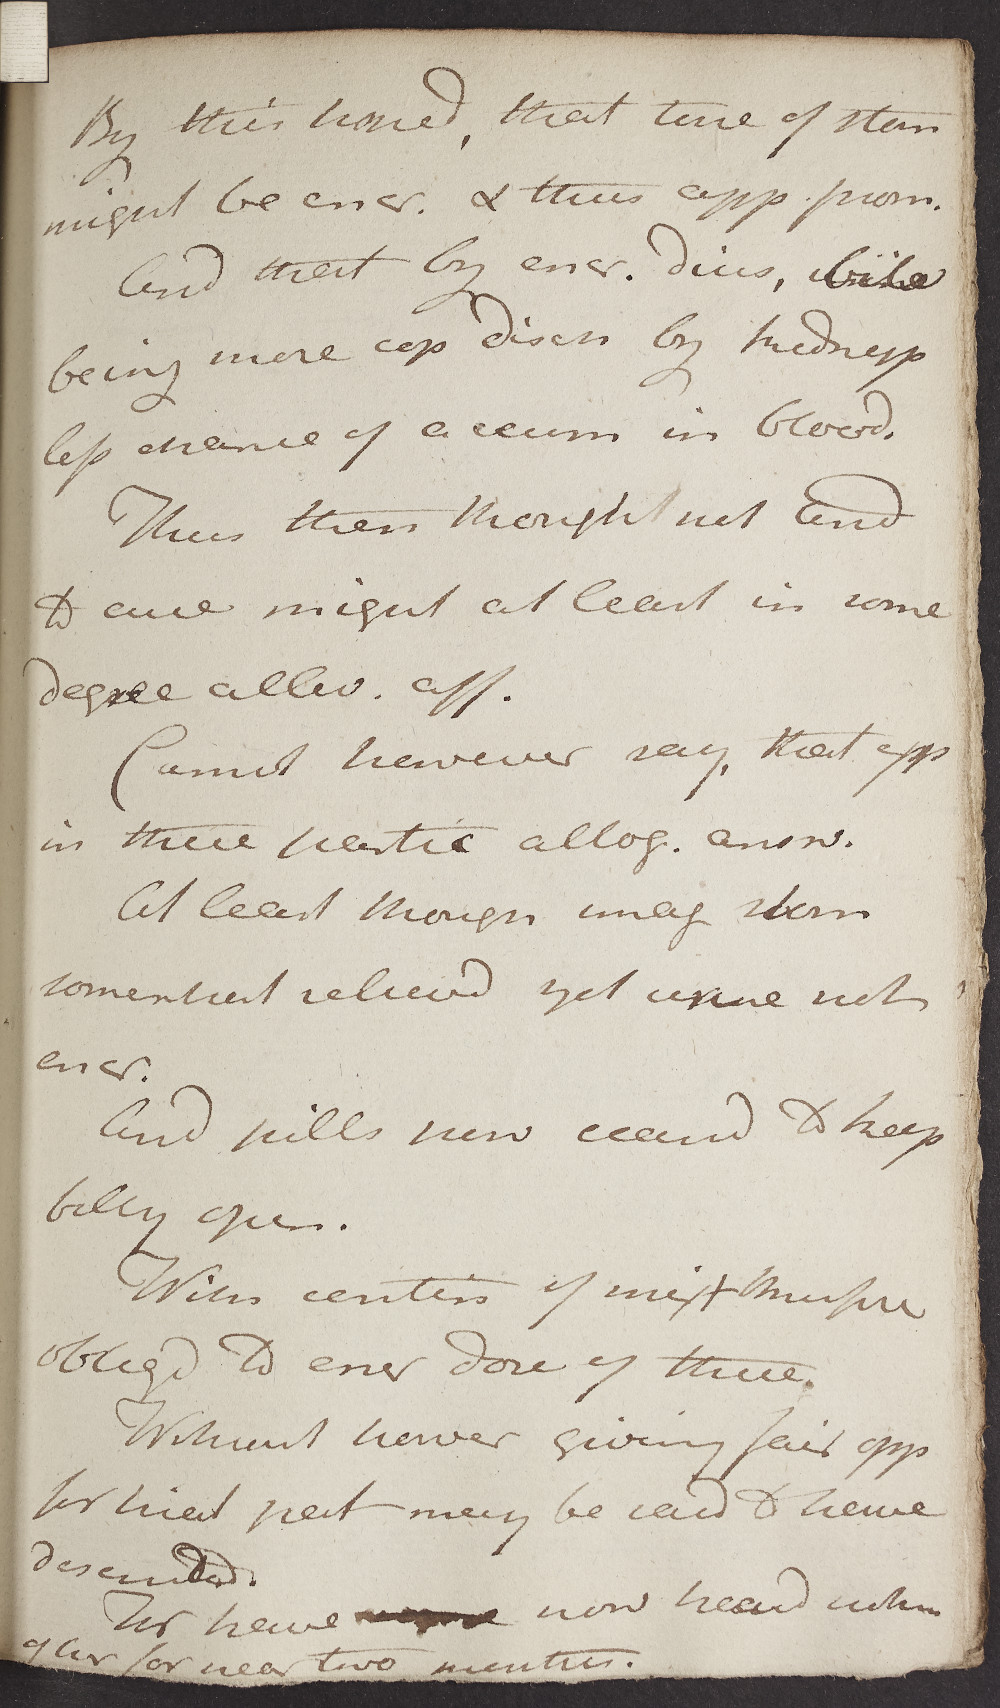 By this hoped, that tone of stom
might be encr. & thus app. prom.
And that by encr. dius, bile
being more cop disch by kidneys
less chance of accum in blood.
Thus then thought not End
to cure might at least in some
degree allev. aff.
Cannot however say, that app
in these partic altog. answ.
At least though imag stom
somewhat relievd yet urine not
encr.
And pills now ceasd to keep
belly open.
With contin of mixt therefore
obligd to encr dose of these.
Without howver giving fair opp
for trial pat may be said to have
deserted.
For have now heard nothin
of her for near two months.